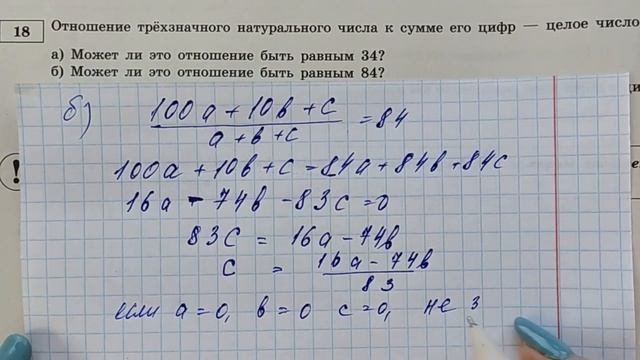 18 Отношение трёхзначного натурального числа к сумме его цифр — целое число
а) Может ли это отношение быть равным 34?
б) Может ли это отношение быть равным 84?
б) (100a + 10b + c)/(a + b + c) = 84
100a + 10b + c = 84a + 84b + 84c
16a - 74b - 83c = 0
83c = 16a - 74b
c = (16a - 74b)/83
если a = 0, b = 0 c = 0, не